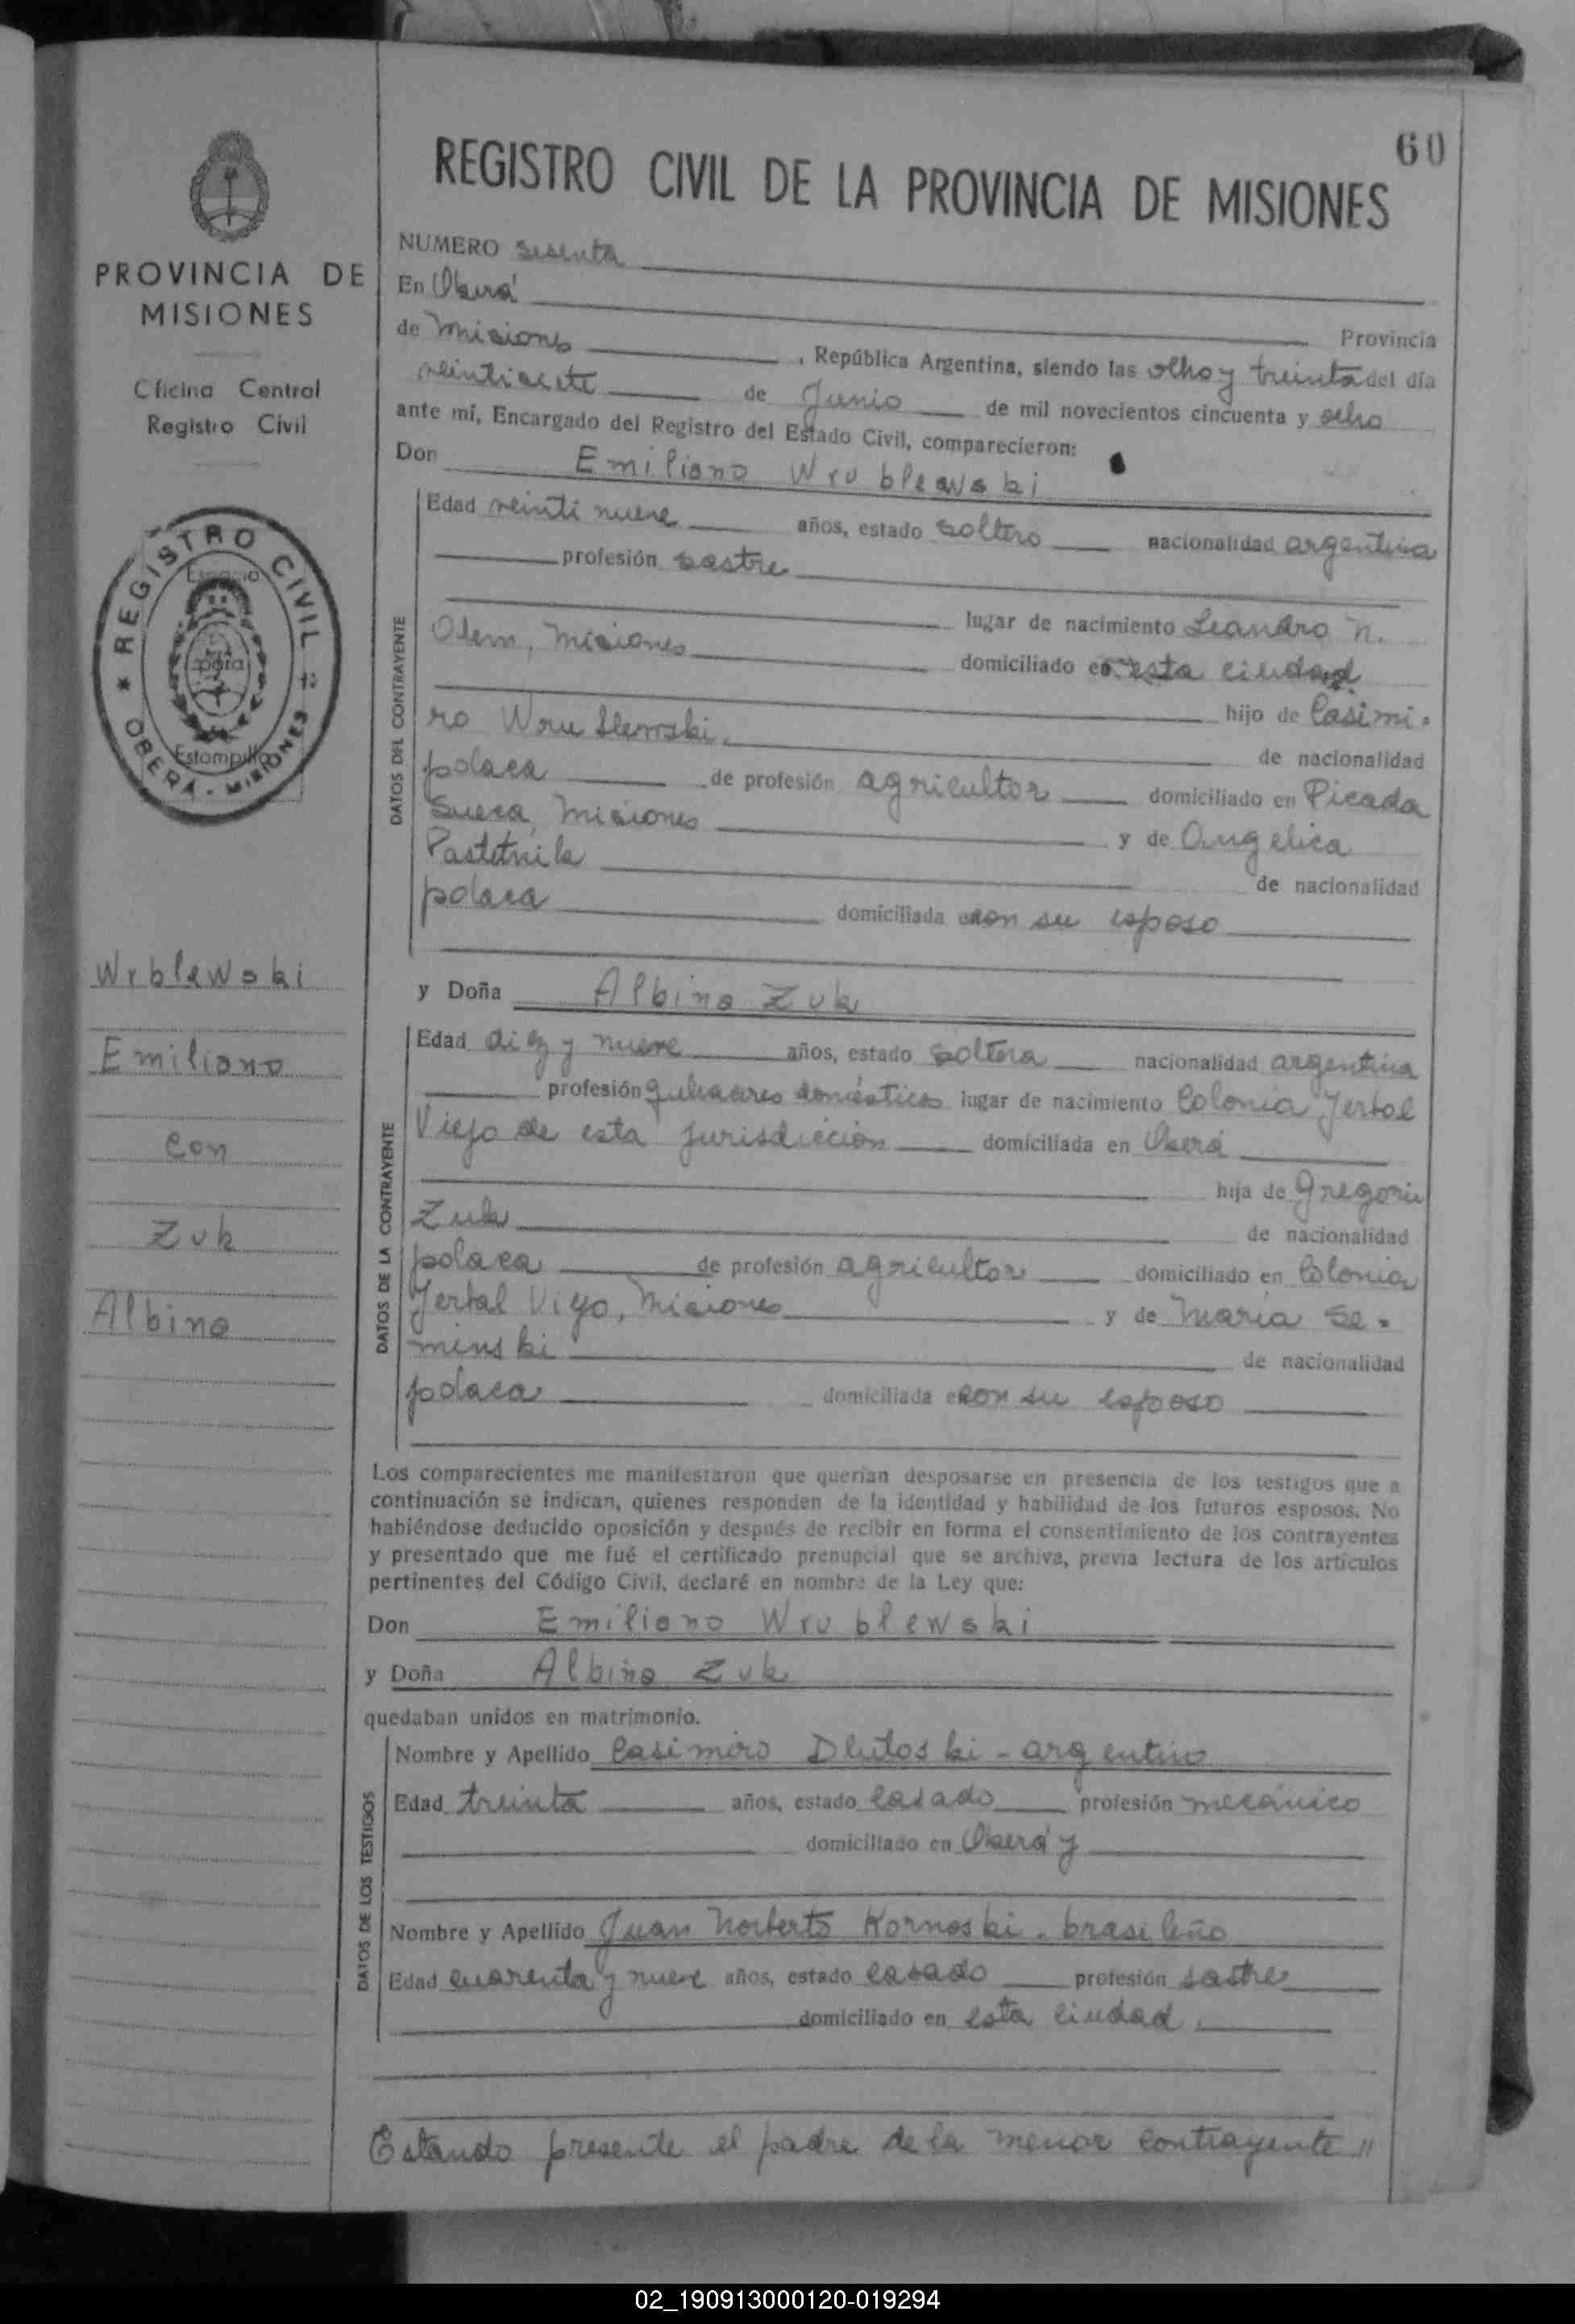 60
REGISTRO CIVIL DE LA PROVINCIA DE MISIONES
PROVINCIA DE
MISIONES
Oficina Central
Registro Civil
REGISTRO CIVIL
Espacio
para
Estampilla
OBERÁ - MISIONES
Wrblewski
Emiliano
con
Zuk
Albina
NUMERO sesenta
En Oberá
Provincia
de Misiones, República Argentina, siendo las ocho y treinta del día
veintisiete de Junio de mil novecientos cincuenta y ocho
ante mí, Encargado del Registro del Estado Civil, comparecieron:
Don Emiliano Wrublewski
DATOS DEL CONTRAYENTE
Edad veintinueve años, estado soltero nacionalidad argentina
profesión sastre
lugar de nacimiento Leandro N.
Alem, Misiones domiciliado en esta ciudad
hijo de Casimi-
ro Wrublewski.
de nacionalidad
polaca de profesión agricultor domiciliado en Picada
Sueca, Misiones y de Angelica
de nacionalidad
polaca domiciliada con su esposo
y Doña Albina Zuk
DATOS DE LA CONTRAYENTE
Edad diez y nueve años, estado soltera nacionalidad argentina
profesión quehaceres domésticos lugar de nacimiento Colonia Yerbal
Viejo de esta jurisdicción domiciliada en Oberá
hija de Gregorio
Zuk de nacionalidad
polaca de profesión agricultor domiciliado en Colonia
Yerbal Viejo, Misiones y de María Se-
minski de nacionalidad
polaca domiciliada con su esposo
Los comparecientes me manifestaron que querían desposarse en presencia de los testigos que a
continuación se indican, quienes responden de la identidad y habilidad de los futuros esposos. No
habiéndose deducido oposición y después de recibir en forma el consentimiento de los contrayentes
y presentado que me fué el certificado prenupcial que se archiva, previa lectura de los artículos
pertinentes del Código Civil, declaré en nombre de la Ley que:
Don Emiliano Wrublewski
y Doña Albina Zuk
quedaban unidos en matrimonio.
DATOS DE LOS TESTIGOS
Nombre y Apellido Casimiro Dlutoski - argentino
Edad treinta años, estado casado profesión mecánico
domiciliado en Oberá y
Nombre y Apellido Juan Norberto Kornoski - brasileño
Edad cuarenta y nueve años, estado casado profesión sastre
domiciliado en esta ciudad.
Estando presente el padre de la menor contrayente //
02_190913000120-019294